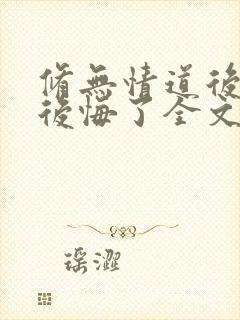 脩無情道後
後悔了全文
瑶澀